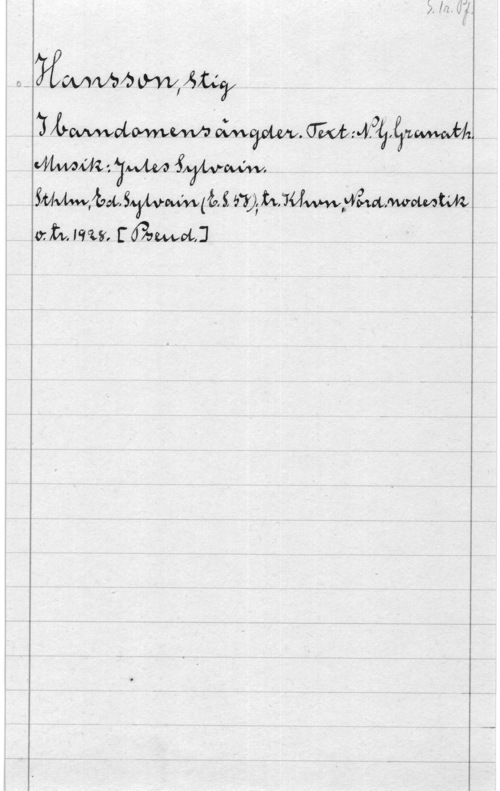 S. Tr. Pf.
Hansson, Stig
I barndomens ängder. Text: N.G. Granath.
Musik: Jules Sylvain.
Sthlm, Ed. Sylvain (E.S 57); tr. Khvn, Nord. nodestik
o. tr. 1928. [Pseud.]